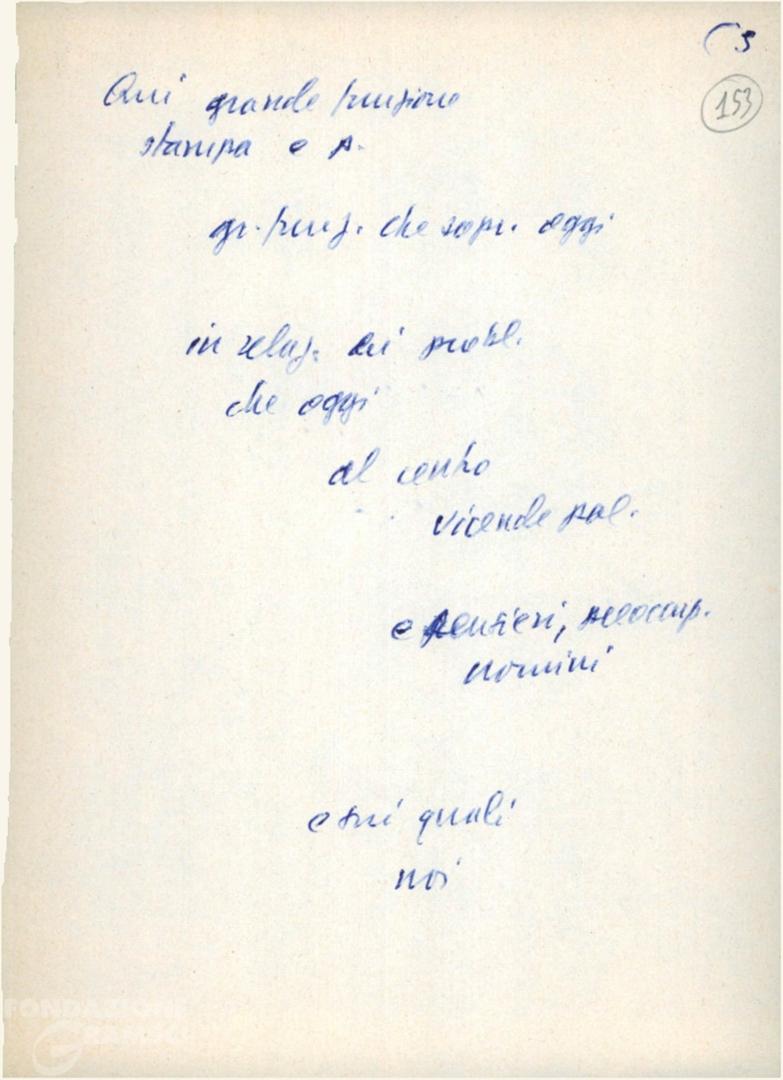 ( 3
153
Qui grande funzione
stampa e p.
gr. funz. che sopr. oggi
in relaz. ai probl.
che oggi
al centro
vicende pol.
e pensieri, preoccup.
uomini
e sui quali
noi
FONDAZIONE
GRAMSCI